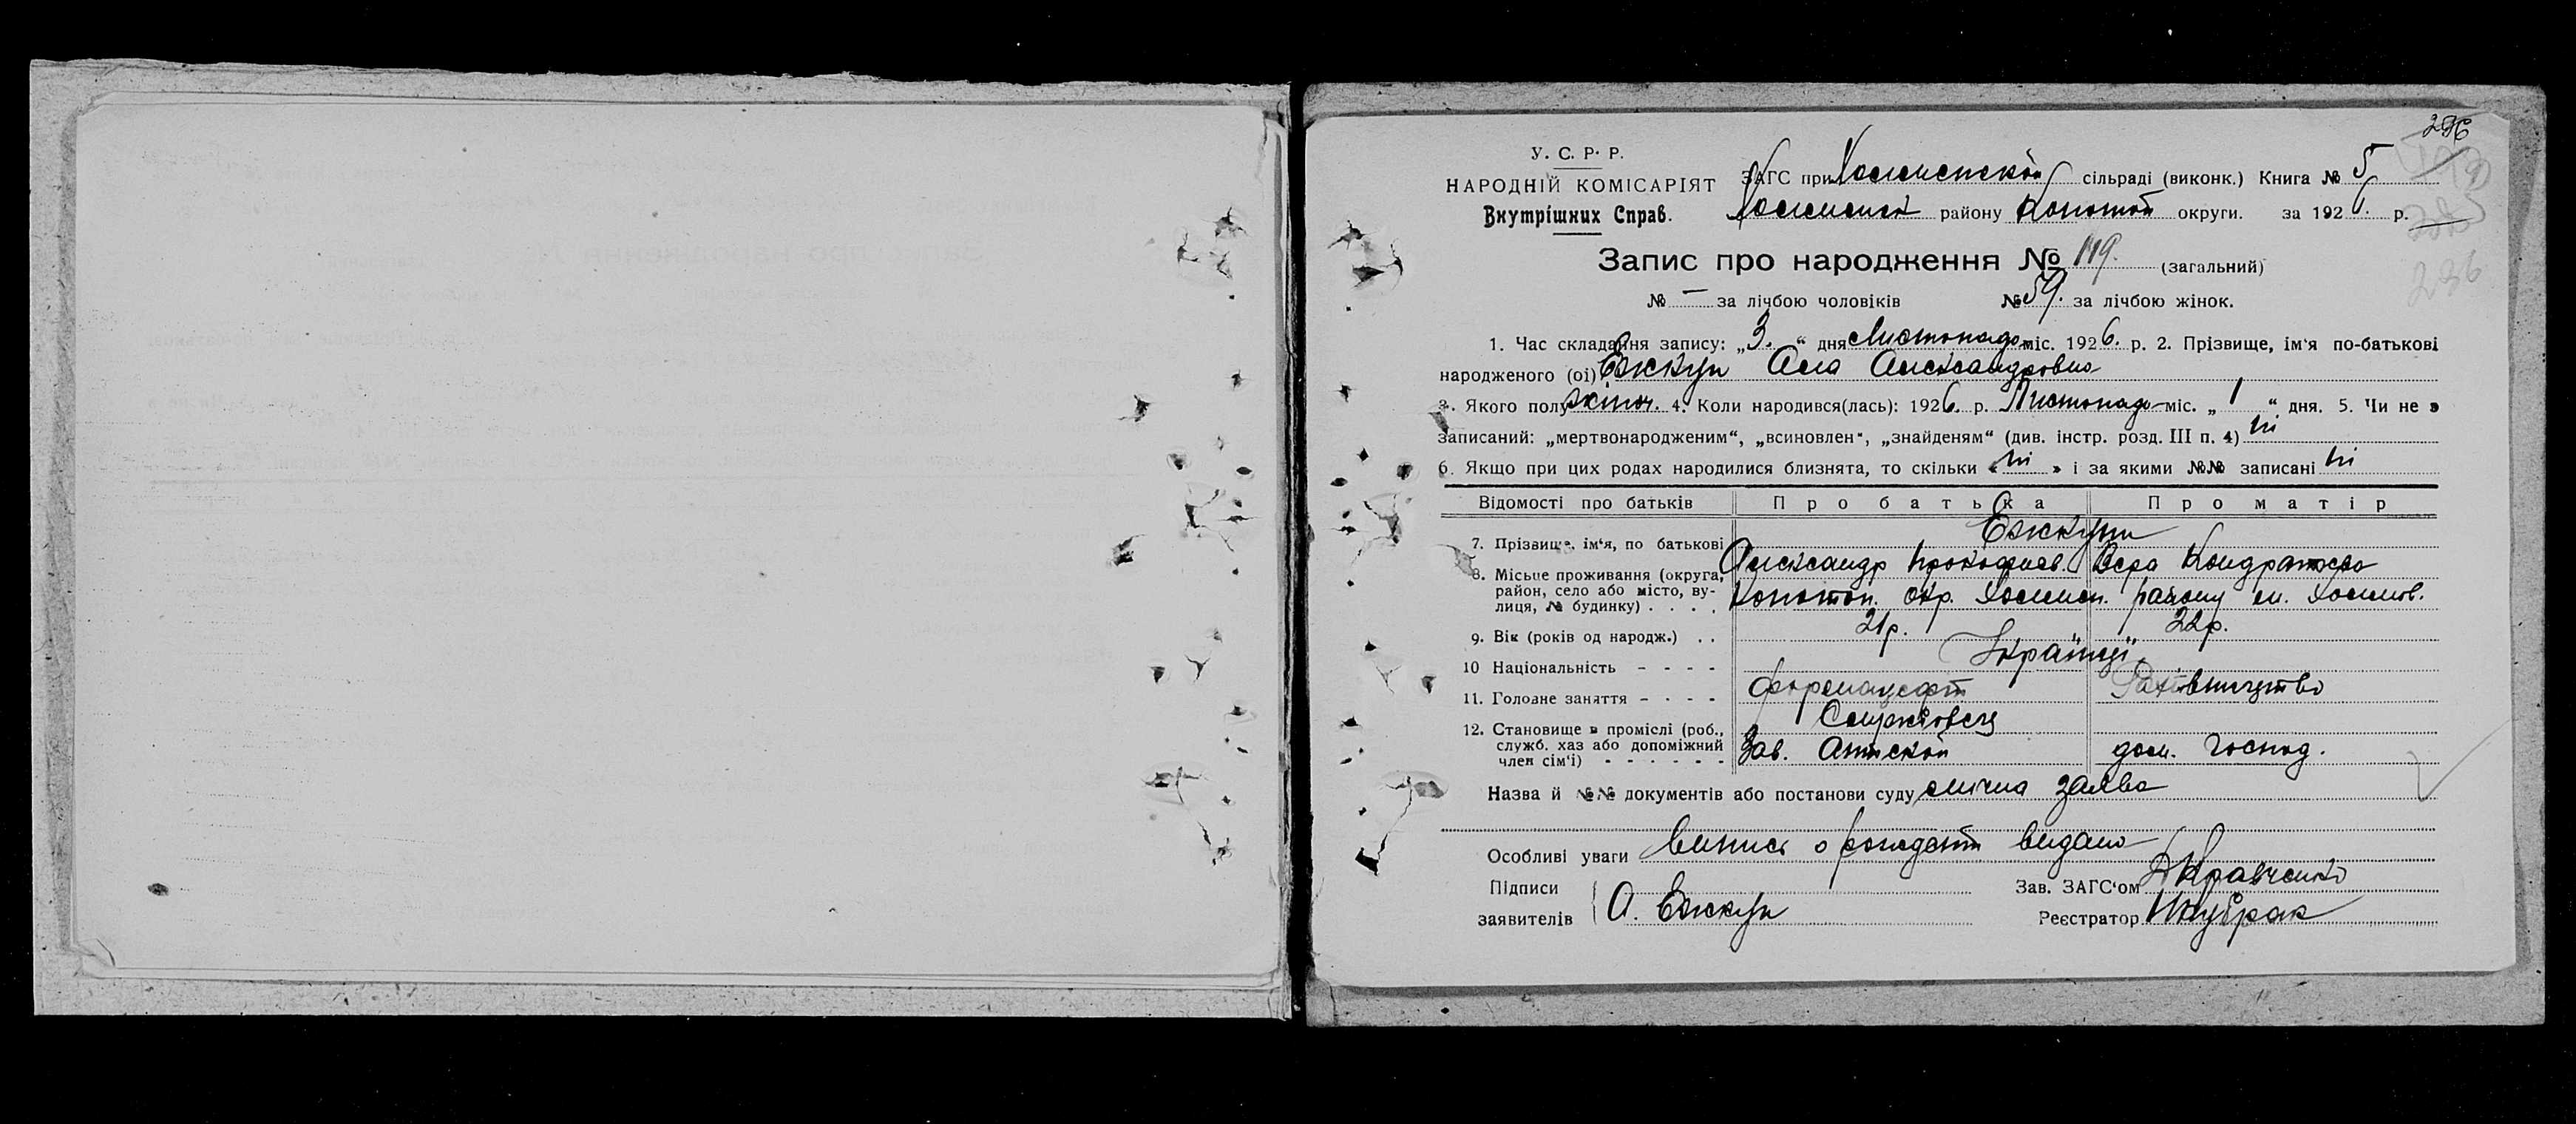 296
У. С. Р. Р.
НАРОДНІЙ КОМІСАРІЯТ
Внутрішних Справ.
ЗАГС при сільраді (виконк.) Книга № 5
району Конотоп округи. за 1926 р.
Запис про народження № 119. (загальний)
№ — за лічбою чоловіків № 59. за лічбою жінок.
236
1. Час складання запису: „3.“ дня Листопада міс. 1926. р. 2. Прізвище, ім'я по-батькові
народженого (ої) Ежкун Ала Александровна
3. Якого полу жіноч. 4. Коли народився(лась): 1926. р. Листопада міс. „ 1 “ дня. 5. Чи не э
записаний: „мертвонародженим“, „всиновлен“, „знайденям“ (див. інстр. розд. III п. 4) ні
6. Якщо при цих родах народилися близнята, то скільки „ ні » і за якими №№ записані ні
Відомості про батьків Про батька Про матір
7. Прізвище, ім'я, по батькові Ежкун
Александр Прокофиев. Вера Кондратьева
8. Місце проживання (округа, район, село або місто, ву-
лиця, № будинку) . . . . Конотоп. окр. району м.
9. Вік (років од народж.) . . 21р. 22р.
10 Національність - - - - Українці
11. Головне заняття - - - - фармацефт Рахівництво
12. Становище в проміслі (роб.,
служб. хаз або допоміжний
член сім'ї) - - - - - - Зав. Аптекой дом. господ.
Назва й №№ документів або постанови суду слична заява
Особливі уваги Випись о рождении видано
Підписи
заявителів А. Ежкун
Зав. ЗАГС'ом Кравченко
Реєстратор